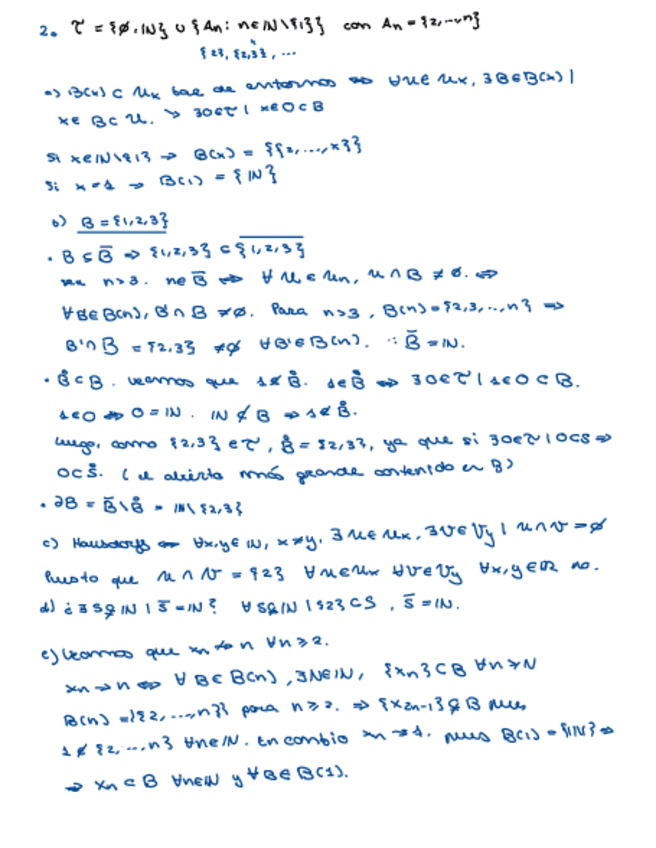 2. τ = {∅, ℕ} ∪ {An : n∈ℕ\{1}} con An = {2,...,n}
{2}, {2,3}, ...
a) B(x) ⊂ Ux base de entornos ⇔ ∀U∈Ux, ∃B∈B(x) |
x∈ B⊂ U. ↘ ∃O∈τ | x∈O⊂B
Si x∈ℕ\{1} ⇒ B(x) = {{2,...,x}}
Si x=1 → B(1) = {ℕ}
b) B = {1,2,3}
· B ⊆ B̅ ⇒ {1,2,3} ⊂ \overline{{1,2,3}}
n>3. n∈B̅ ⇔ ∀U∈Un, U∩B ≠ ∅. ⇔
∀B∈B(n), B'∩B ≠∅. Para n>3, B(n) = {2,3,...,n} ⇒
B'∩B = {2,3} ≠∅ ∀B'∈B(n). ∴ B̅ = ℕ.
· B̊ ⊂ B. veamos que 1∉B̊. 1∈B̊ ⇔ ∃O∈τ | 1∈O⊂B.
1∈O ⇔ O = ℕ. ℕ ⊄ B ⇒ 1∉B̊.
Luego, como {2,3} ∈ τ, B̊ = {2,3}, ya que si ∃O∈τ | O⊂S ⇒
O⊂S̊. (el abierto más grande contenido en B)
· ∂B = B̅\B̊ = ℕ\{2,3}
c) Hausdorff ⇔ ∀x,y∈ℕ, x≠y, ∃U∈Ux, ∃V∈Vy | U∩V=∅
Puesto que U∩V = {2} ∀U∈Ux ∀V∈Vy ∀x,y∈ no.
d) ¿∃S⊊ℕ | S̅=ℕ? ∀S⊊ℕ | {2}⊂S, S̅=ℕ.
e) Veamos que xn ↛ n ∀n≥2.
xn → n ⇔ ∀B∈B(n), ∃N∈ℕ, {xn} ⊂ B ∀n≥N
B(n) = {{2,...,n}} para n≥2. ⇒ {x2n-1} ⊄ B pues
1∉{2,...,n} ∀n∈ℕ. En cambio xn → 1. pues B(1) = {ℕ} ⇒
⇒ xn ⊂ B ∀n∈ℕ y ∀B∈B(1).